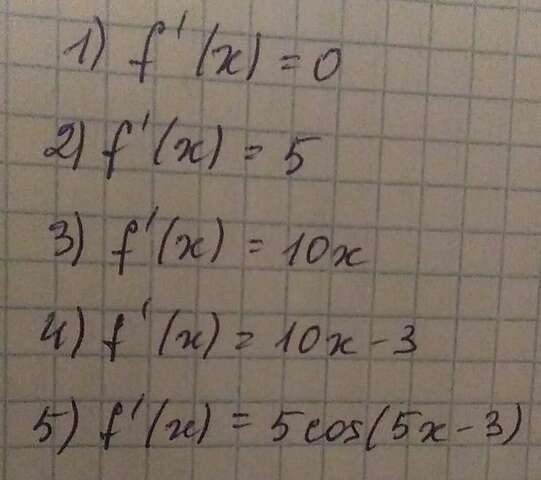 1) f'(x) = 0
2) f'(x) = 5
3) f'(x) = 10x
4) f'(x) = 10x - 3
5) f'(x) = 5cos(5x - 3)